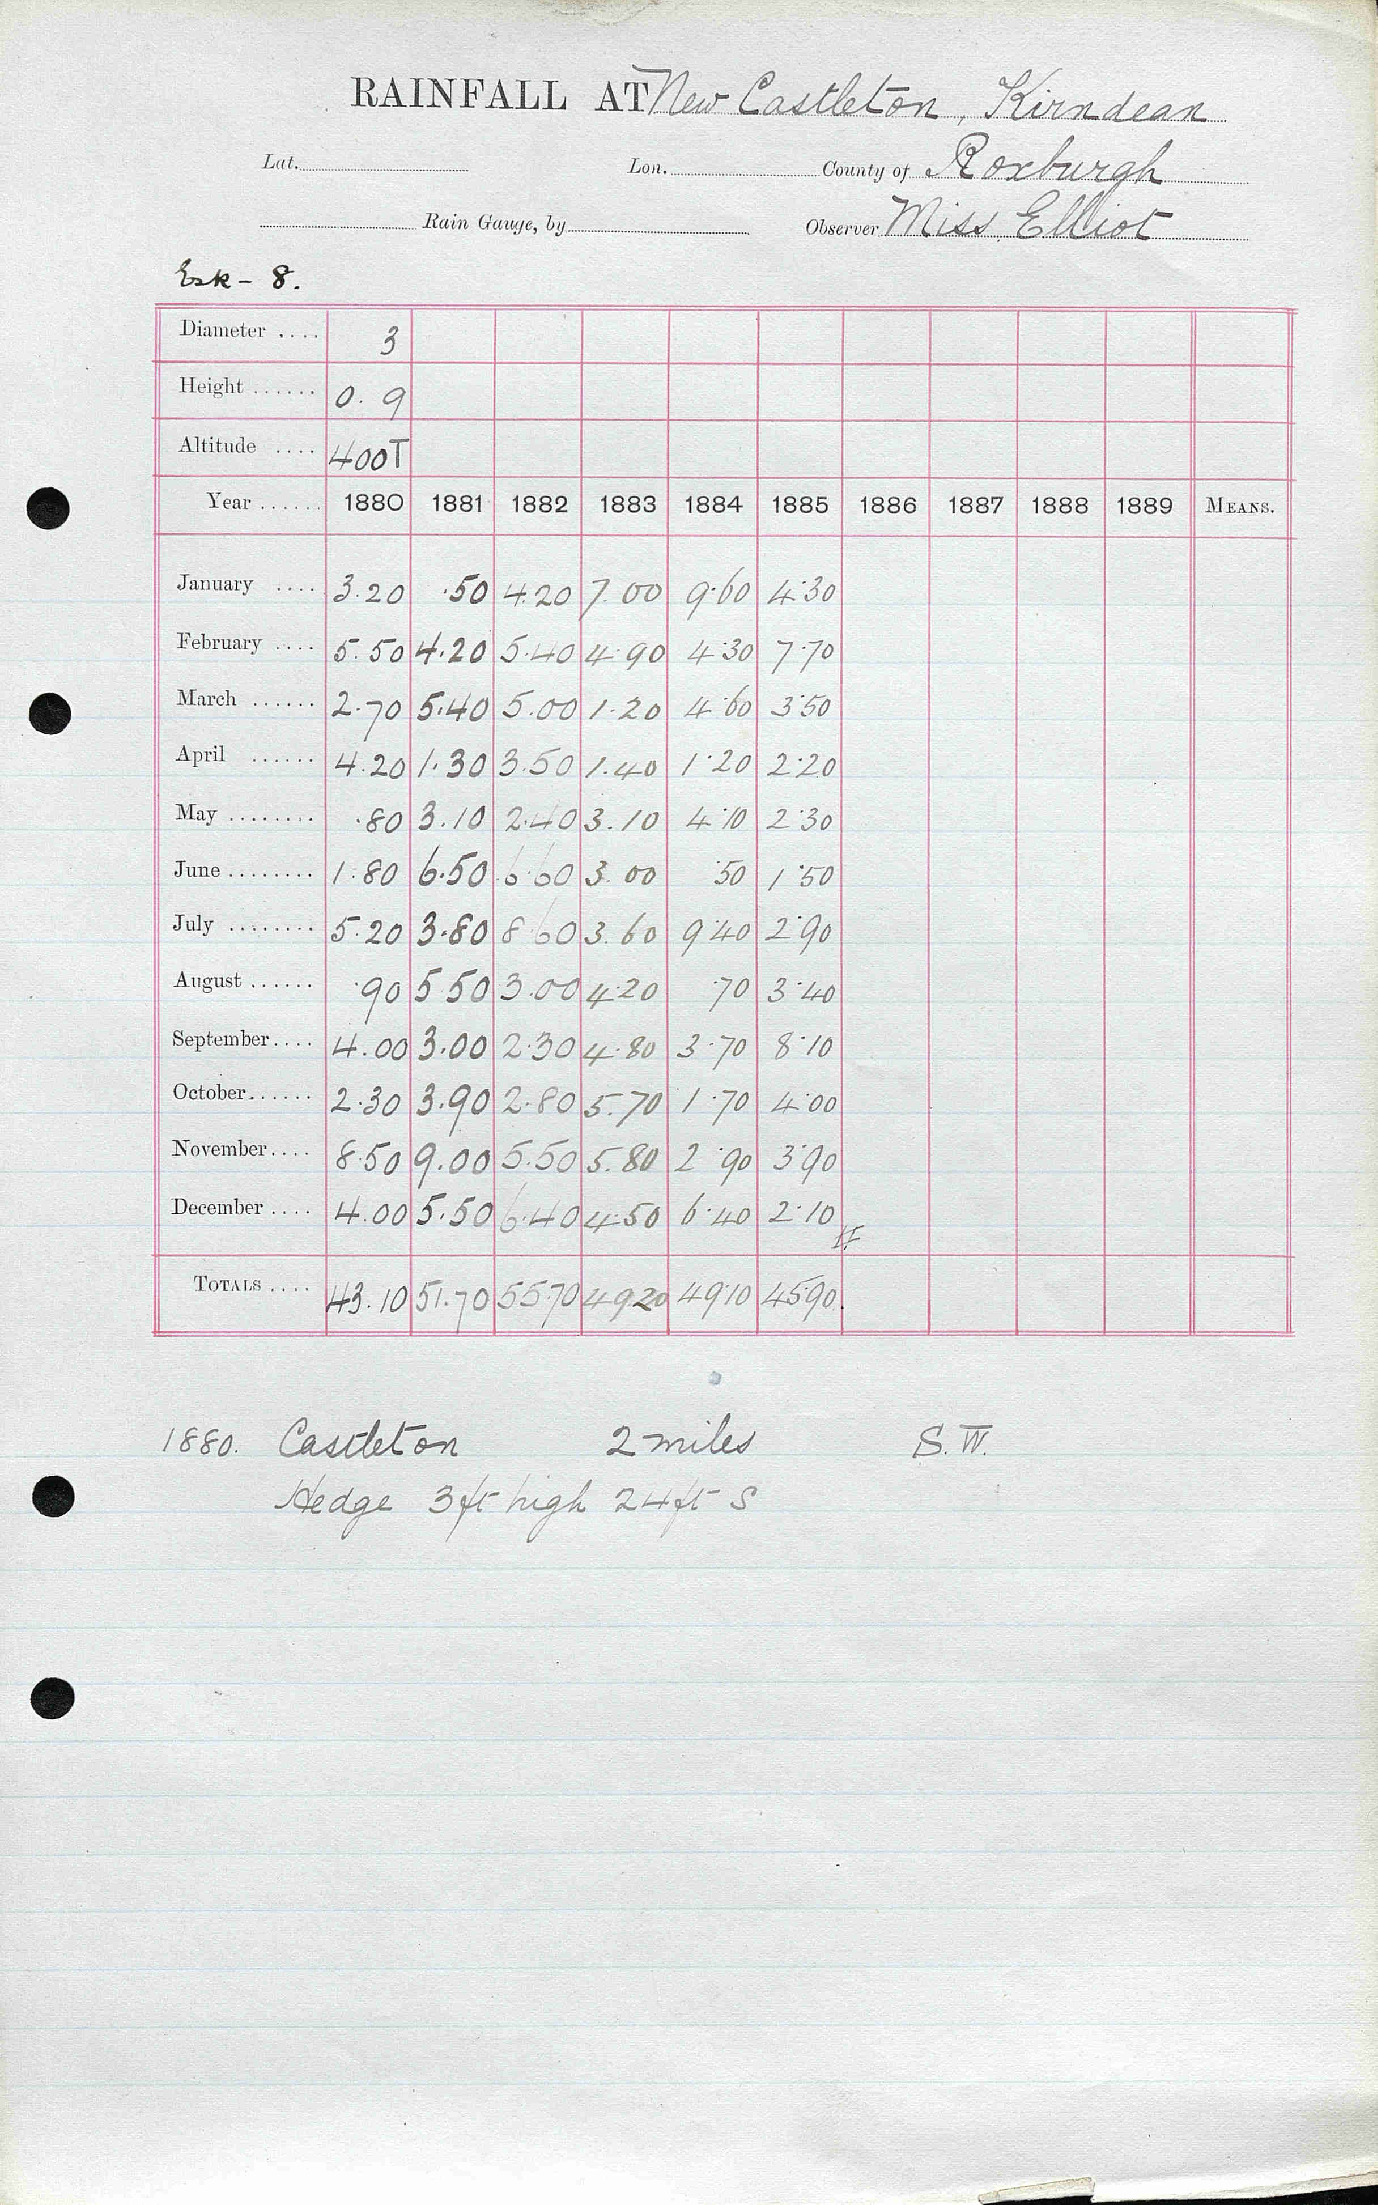 RAINFALL AT New Castleton, Kirndean
Lat. Lon. County of Roxburgh
Rain Gauge, by Observer Miss Elliot
Esk - 8.
Diameter .... 3
Height ...... 0. 9
Altitude .... 400T
Year ...... 1880 1881 1882 1883 1884 1885 1886 1887 1888 1889 MEANS.
January .... 3.20 .50 4.20 7.00 9.60 4.30
February .... 5.50 4.20 5.40 4.90 4.30 7.70
March ...... 2.70 5.40 5.00 1.20 4.60 3.50
April ...... 4.20 1.30 3.50 1.40 1.20 2.20
May ........ .80 3.10 2.40 3.10 4.10 2.30
June ........ 1.80 6.50 6.60 3.00 .50 1.50
July ........ 5.20 3.80 8.60 3.60 9.40 2.90
August ...... .90 5.50 3.00 4.20 .70 3.40
September .... 4.00 3.00 2.30 4.80 3.70 8.10
October ...... 2.30 3.90 2.80 5.70 1.70 4.00
November .... 8.50 9.00 5.50 5.80 2.90 3.90
December .... 4.00 5.50 6.40 4.50 6.40 2.10
TOTALS .... 43.10 51.70 55.70 49.20 49.10 45.90
1880. Castleton 2 miles S.W.
Hedge 3ft high 24ft S